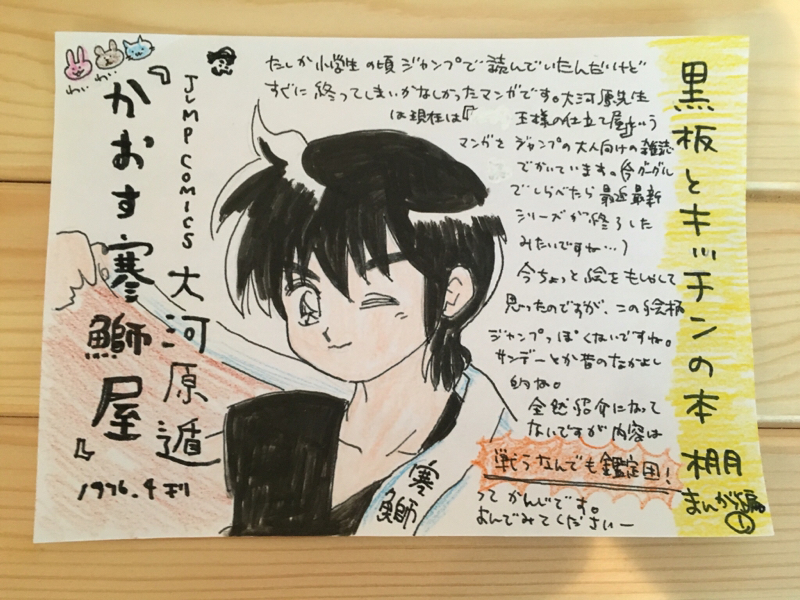 黒板とキッチンの本棚
まんが編。①
たしか小学生の頃ジャンプで読んでいたんだけど
すぐに終ってしまいかなしかったマンガです。大河原先生
は現在は『王様の仕立て屋』という
マンガをジャンプの大人向けの雑誌
でかいています。(今グーグル
でしらべたら最近最新
シリーズが終了した
みたいですね…)
今ちょっと絵をもしゃして
思ったのですが、この絵柄
ジャンプっぽくないですね。
サンデーとか昔のなかよし
的ね。
全然紹介になって
ないですが内容は
戦うなんでも鑑定団!
ってかんじです。
よんでみてくださいー
JUMP COMICS 大河原遁
『かおす寒鰤屋』
1976.4刊
わぃ わぃ
寒鰤